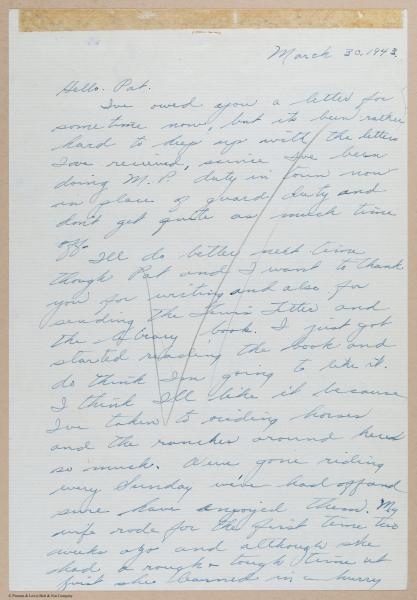 March 30, 1943.
Hello Pat.
I've owed you a letter for
sometime now, but it's been rather
hard to keep up with the letters
I've received, since I've been
doing M.P. duty in town now
in place of guard duty and
don't get quite as much time
off.
I'll do better next time
though Pat and I want to thank
you for writing and also for
sending the News Letter and
the library book. I just got
started reading the book and
do think I'm going to like it.
I think I'll like it because
I've taken to riding horses
and the ranches around here
so much. We've gone riding
every Sunday we've had off and
sure have enjoyed them. My
wife rode for the first time two
weeks ago and although she
had a rough & tough time at
first she learned in a hurry